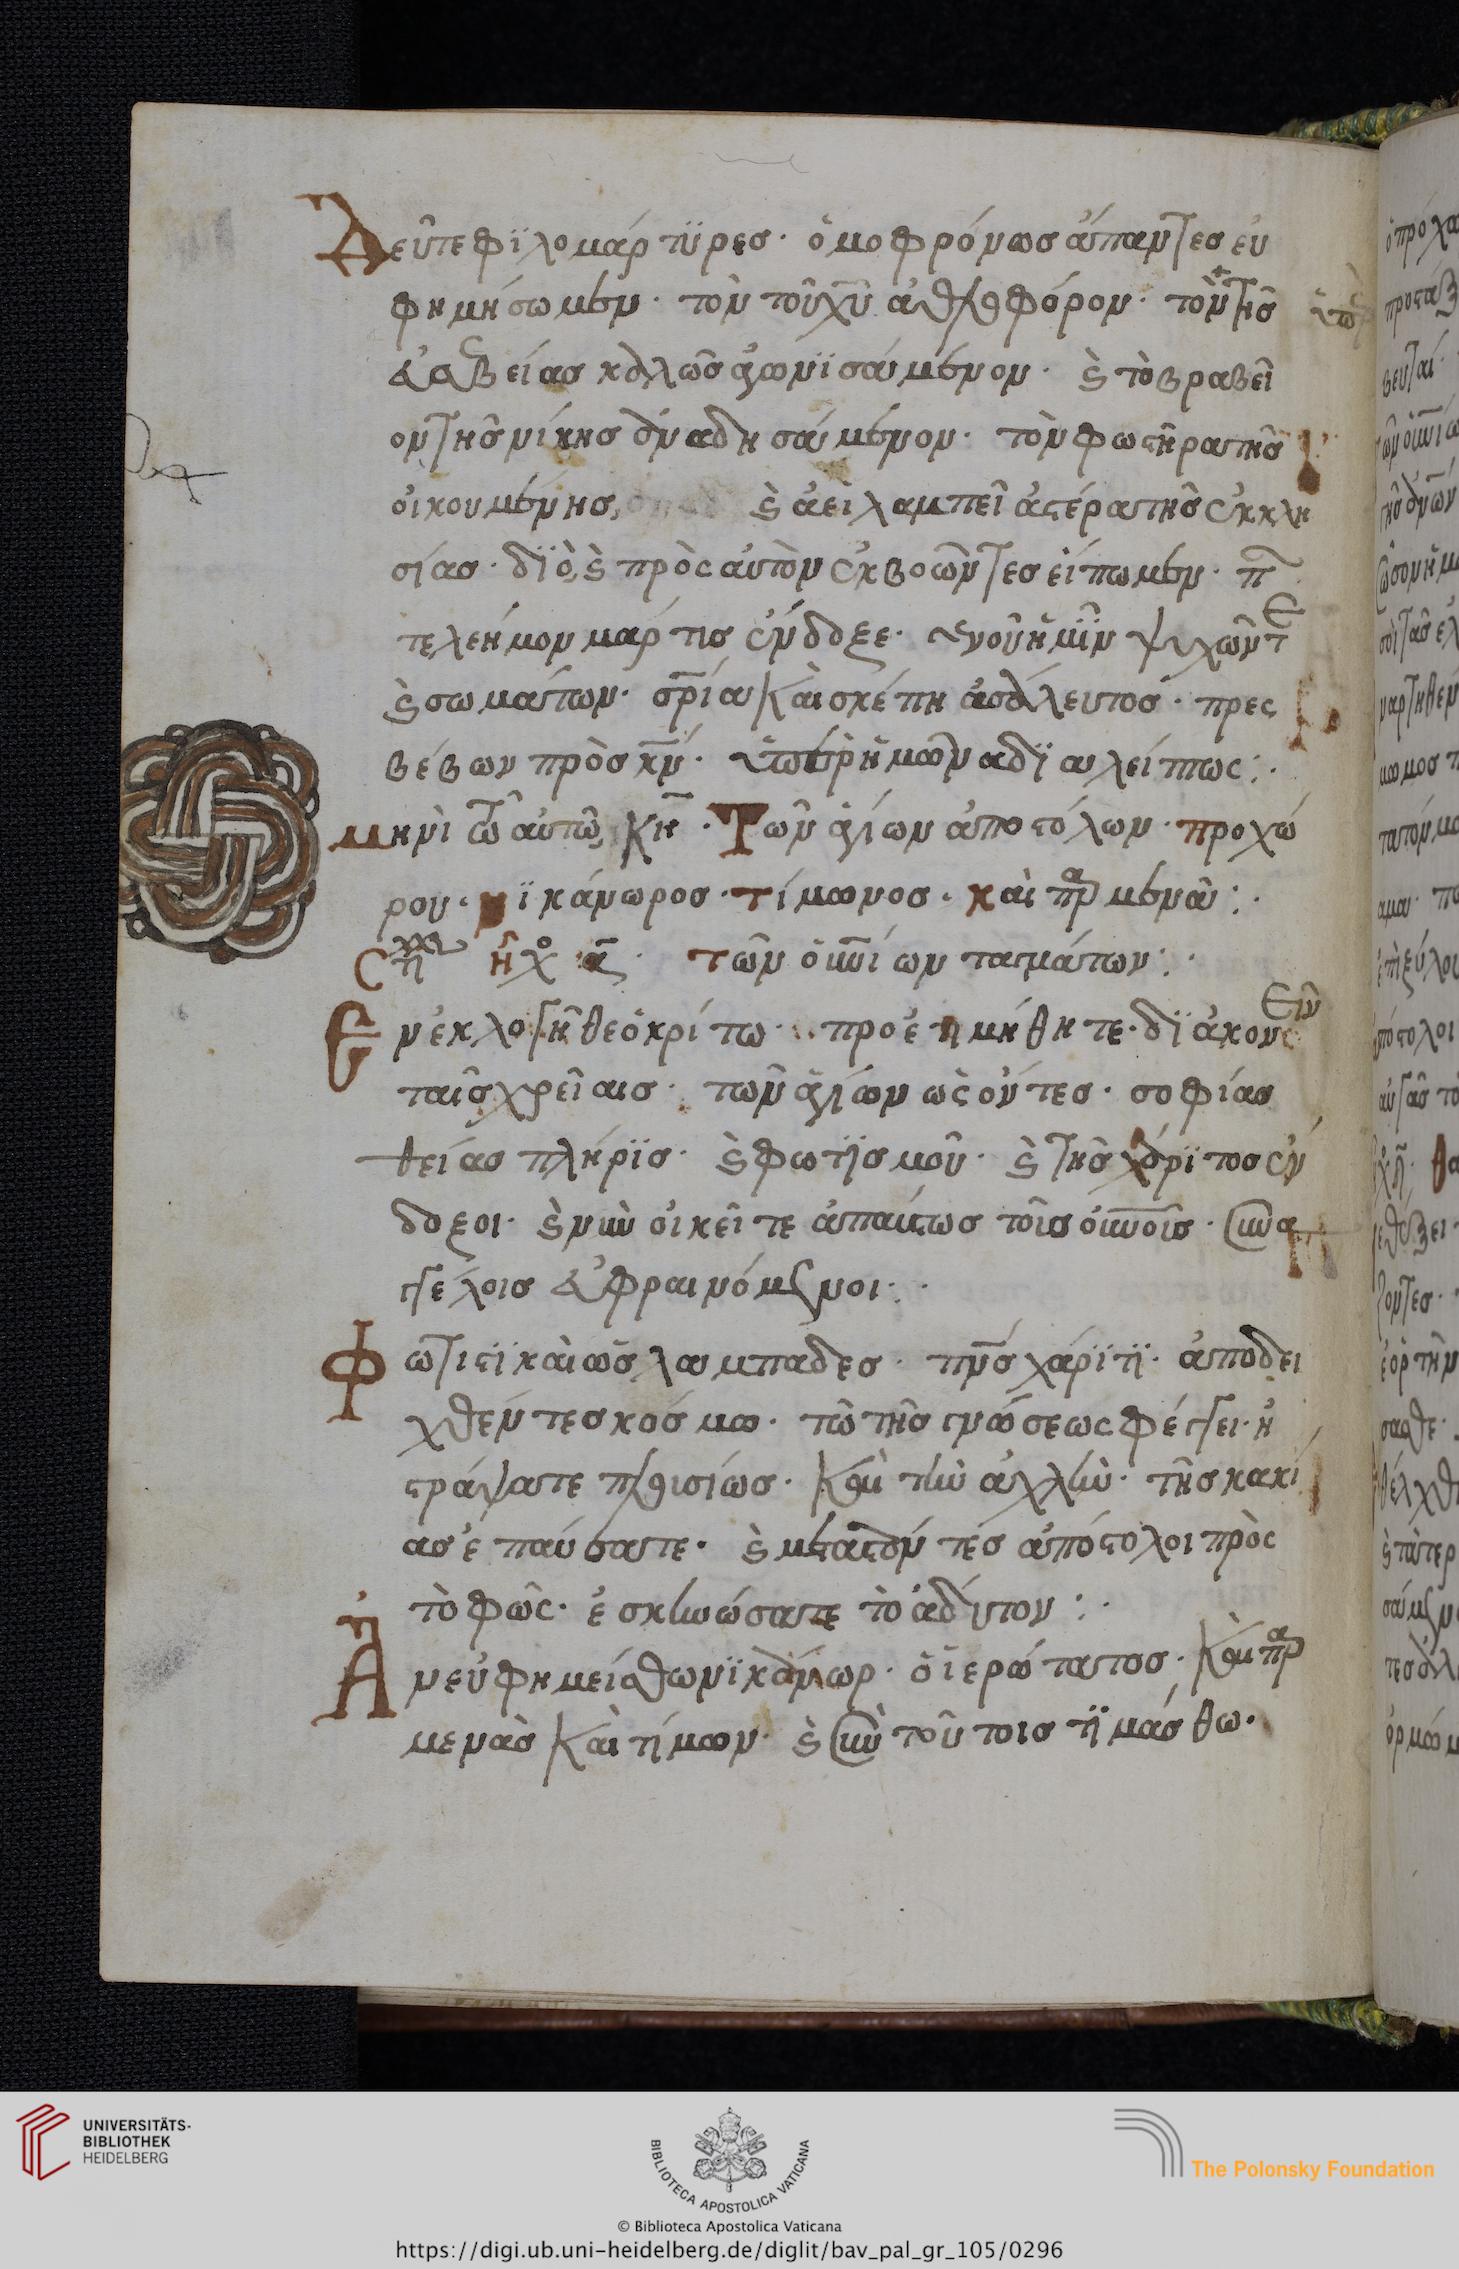 Δεῦτε φϊλομάρτϋρες· ὁμοφρόνως ἅπαντες εὐ
φημήσωμεν· τὸν τοῦ χυ ἀθληφόρον· τὸν τῆς
εὐσεβείας καλλῶς ἀγωνϊσάμενον· καὶ τὸ βραβεῖ
ον τῆς νίκης ἀναδησάμενον· τὸν φωστῆρα τῆς
οἰκουμένης, καὶ ἀεὶ λαμπεῖ ἀστέρα τῆς ἐκκλη
σίας· δϊὸ, καὶ πρὸς αὐτὸν ἐκβοῶντες εἴπωμεν· π
τελεήμον μάρτις ἔνδοξε· γενοῦ ἡμῖν ψυχῶν τ
ε
καὶ σωμάτων· σρία καὶ σκέπη ἀσάλευτος· πρεσ
βέβων πρὸς κν· ὑπὲρ ἡμῶν αδϊαλείπτως:·
μηνὶ τῶ αὐτῶ, κη· Τῶν ἁγίων ἀποστόλων· προχώ
ρου· νϊκάνωρος· τίμωνος· καὶ παρμενᾶ:·
στη ἦχο α· τῶν οὐνίων ταγμάτων:·
Ἐν ἐκλογῆ θεοκρίτω· προετημήθητε· δϊάκον
εῖν
ταῖς χρεῖαις· τῶν ἁγίων ὡς ὄντες· σοφίας
θείας πλήρϊς· καὶ φωτϊσμοῦ· καὶ τῆς χάρϊτος ἔν
δοξοι· καὶ νῦν οἰκεῖτε ἀπαύστως τοῖς οὐνοῖς· σὺν α
γγέλοις εὐφραινόμενοι:·
Φωτιστϊκαὶ ὡς λαμπαδες· πνς χάρϊτϊ· ἀποδει
χθέντες κόσμω· τῶ τῆς γνώσεως φέγγει· ἠ
στράψατε πλησίως· καὶ τὴν ἀχλὴν· τῆς κακί
ας ἐπαύσατε· καὶ μεταστάντες ἀπόστολοι πρὸς
τὸ φῶς· ἐσκηνώσατε τὸ ἀδύτον:·
Ἀνευφημείσθω νϊκάνωρ· ὁ ἱερώτατος· καὶ παρ
μενὰς καὶ τήμων· καὶ σὺν τοῦτοις τϊμάσθω·
UNIVERSITÄTS-
BIBLIOTHEK
HEIDELBERG
BIBLIOTECA APOSTOLICA VATICANA
The Polonsky Foundation
© Biblioteca Apostolica Vaticana
https://digi.ub.uni-heidelberg.de/diglit/bav_pal_gr_105/0296